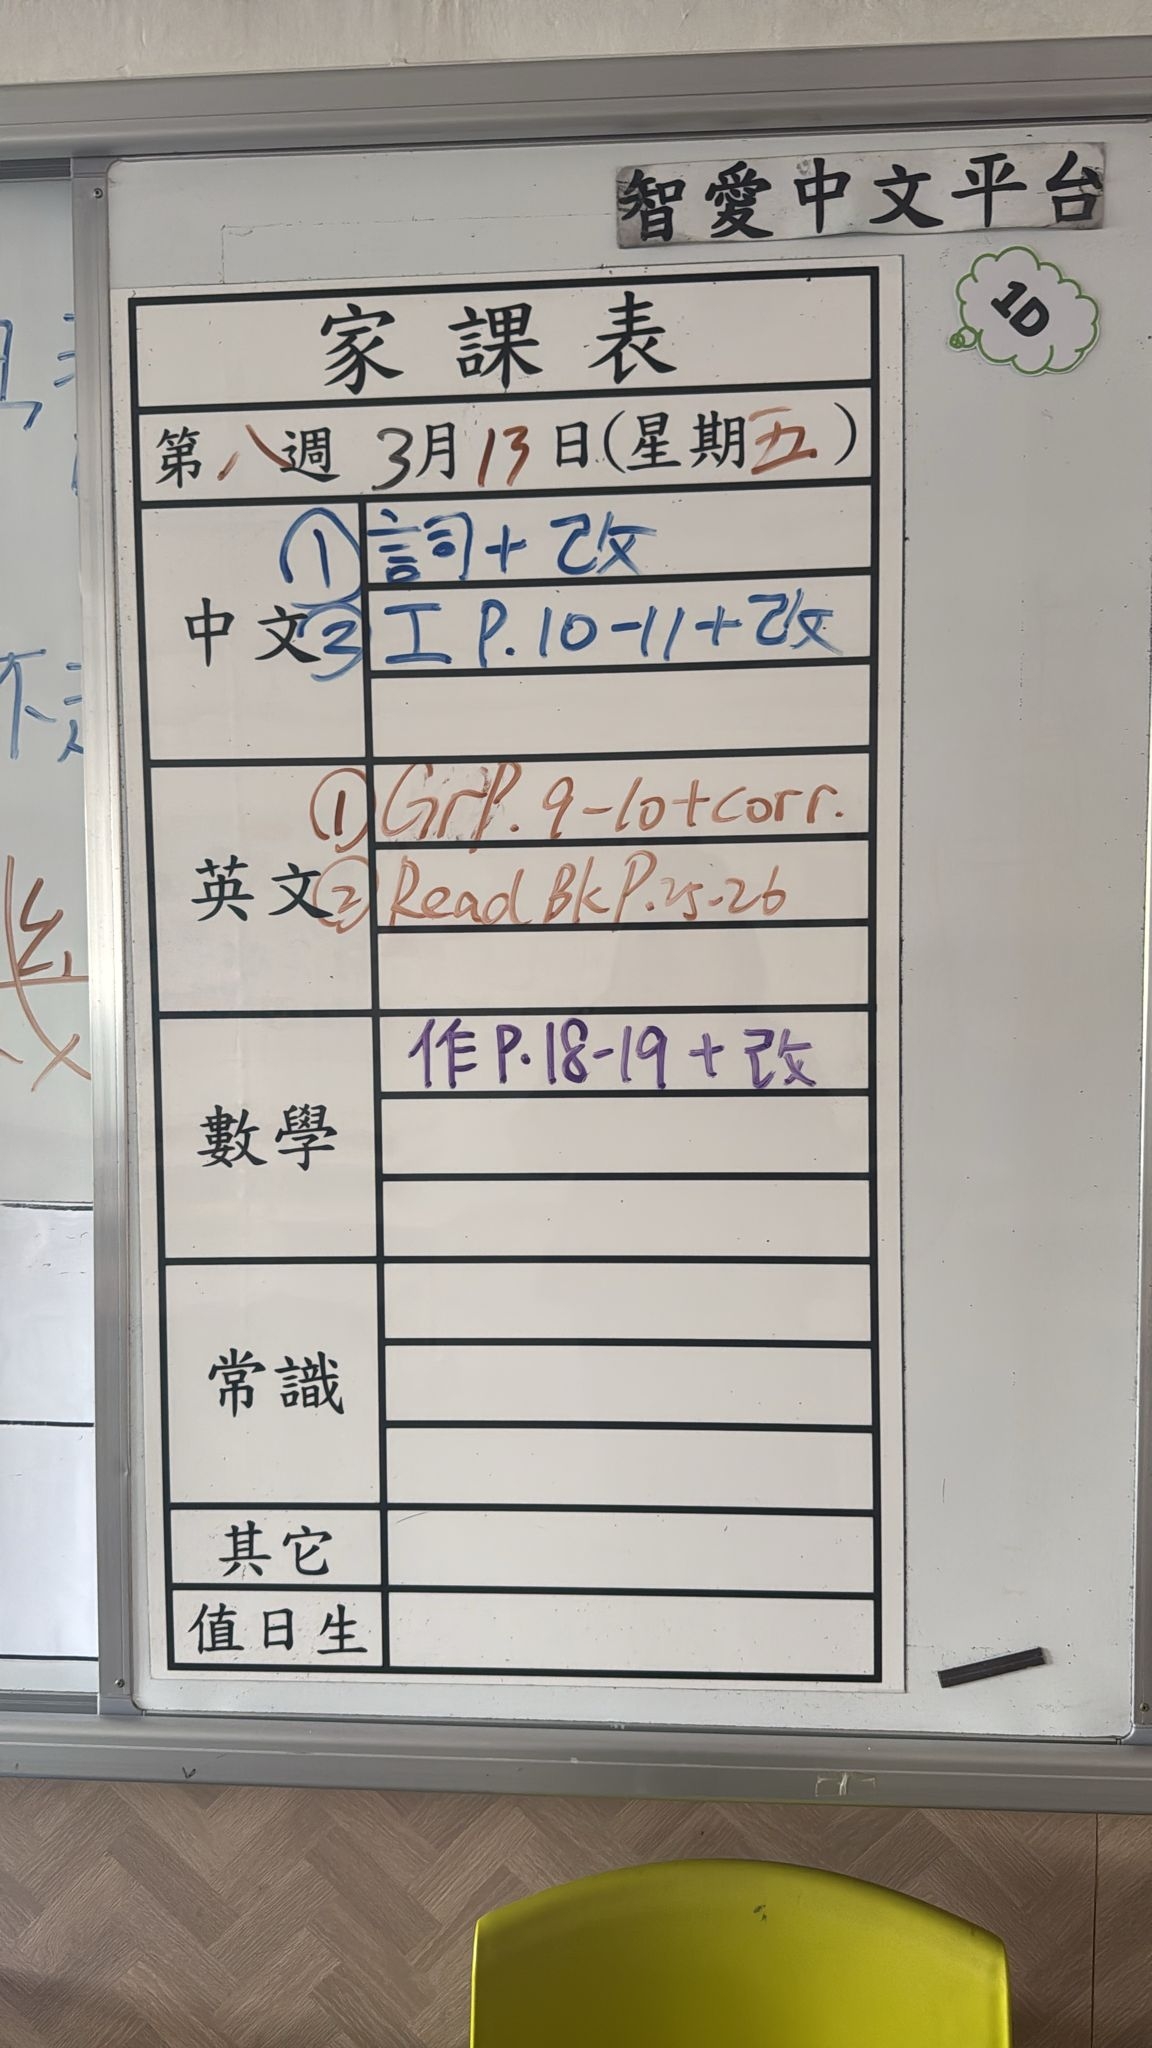 智愛中文平台
1D
家課表
第八週 3月13日(星期五)
中文
① 詞+改
③ 工 P.10-11+改
英文
① Gr P. 9-10+corr.
② Read Bk P.25-26
數學
作 P.18-19 + 改
常識
其它
值日生